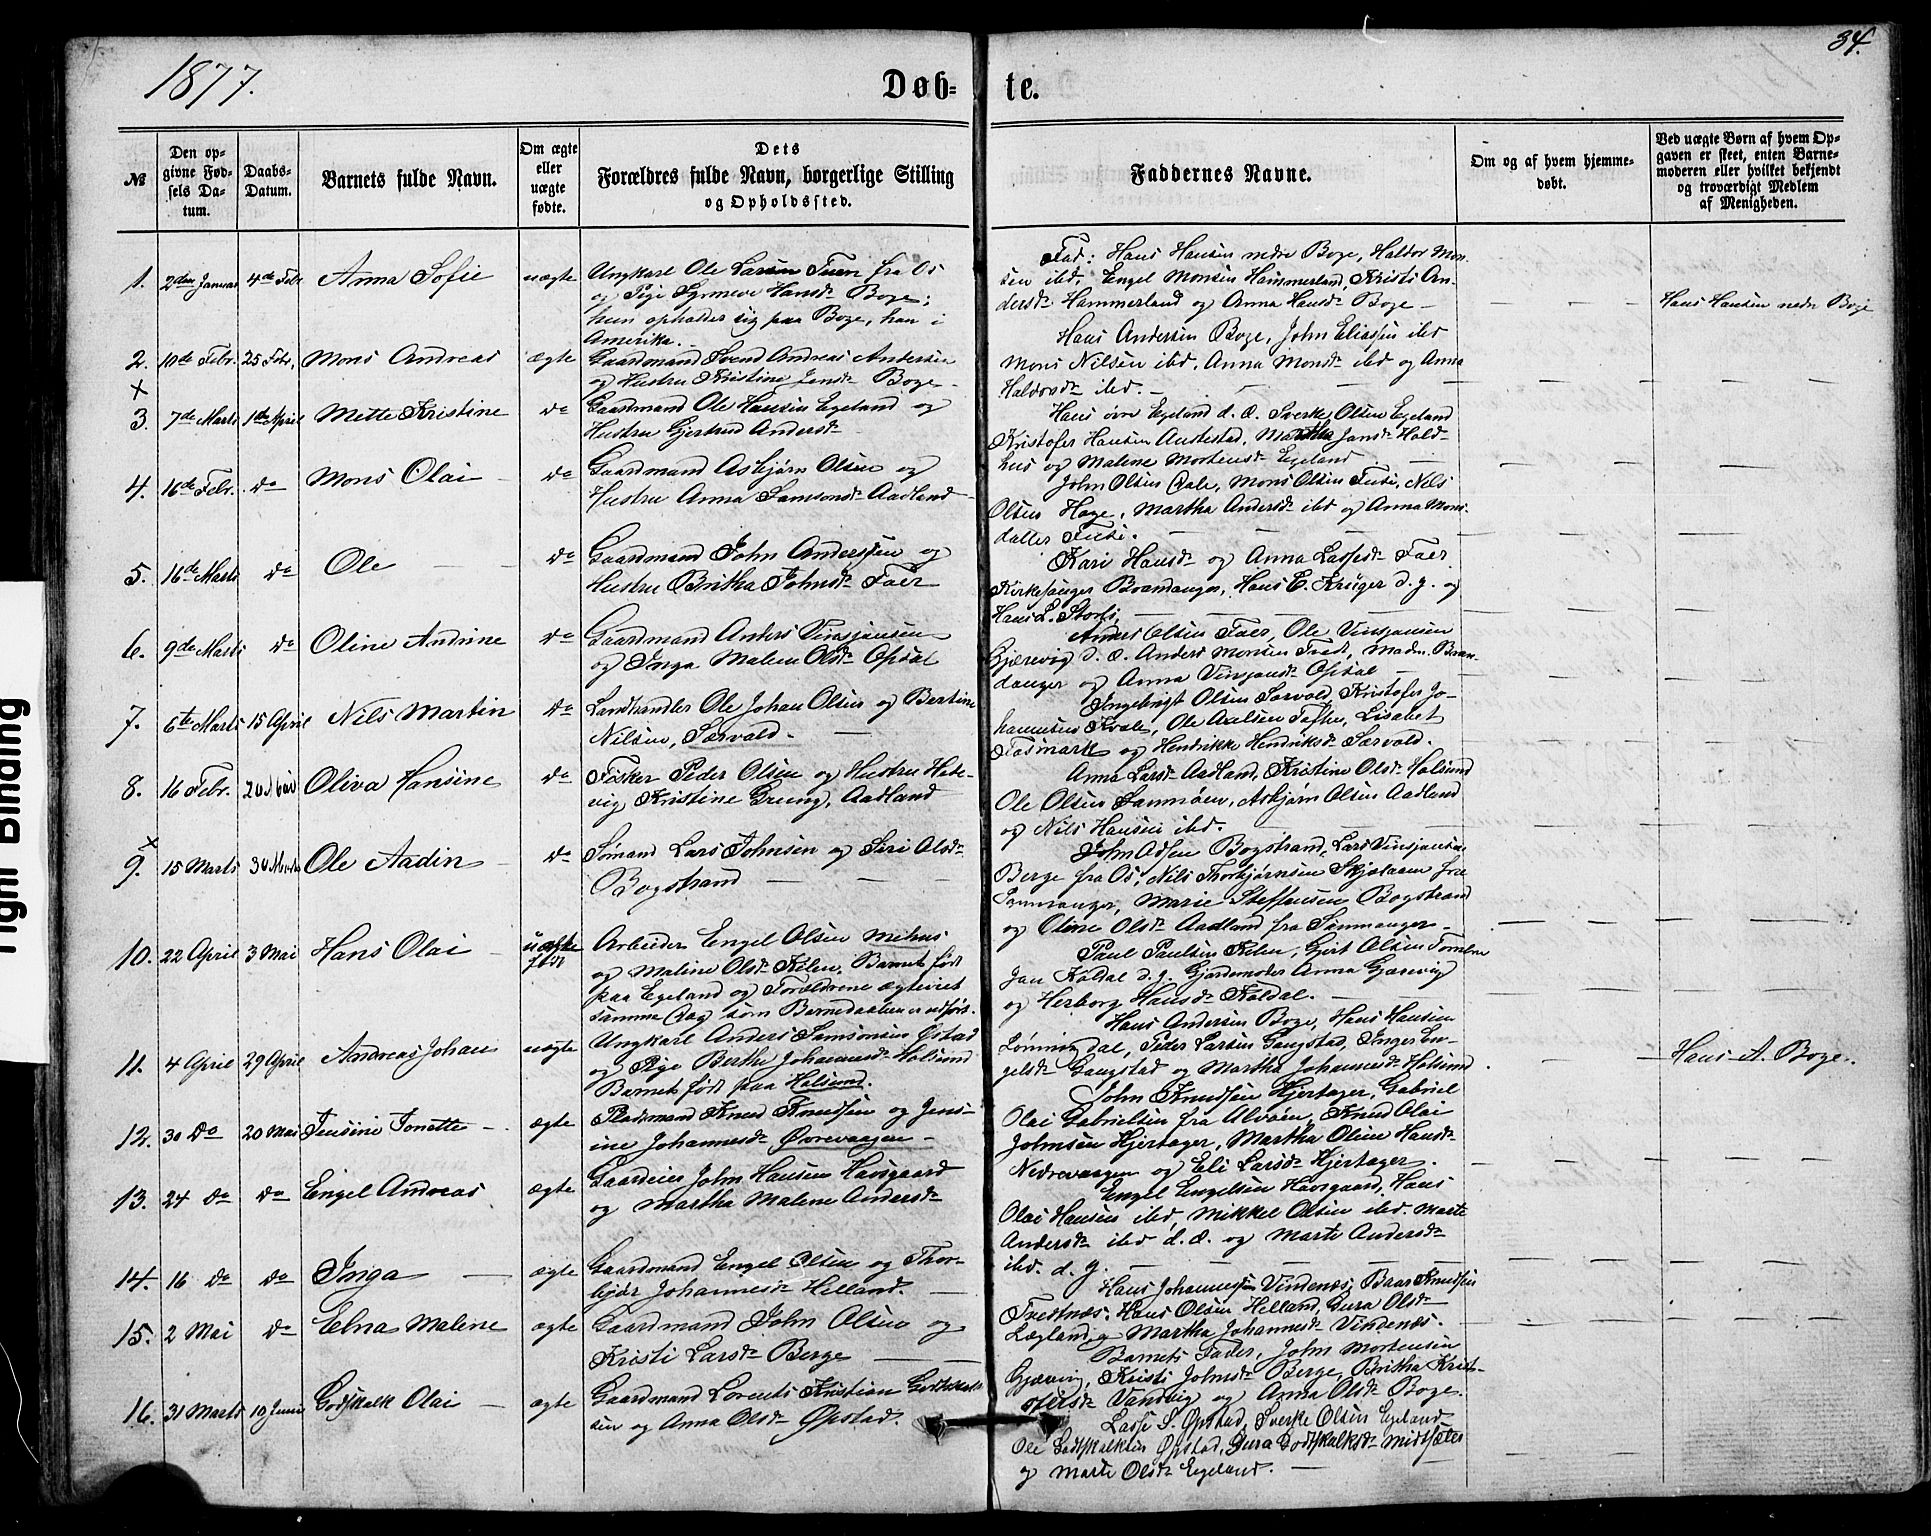 1877.
Døb-
te.
34.
№
Den op-
givne Fød-
sels Da-
tum.
Daabs-
Datum.
Barnets fulde Navn.
Om ægte
eller
uægte
fødte.
Dets
Forældres fulde Navn, borgerlige Stilling
og Opholdssted.
Faddernes Navne.
Om og af hvem hjemme-
døbt.
Ved uægte Børn af hvem Op-
gaven er skeet, enten Barne-
moderen eller hvilket bekjendt
og troværdigt Medlem
af Menigheden.
1. 2den Januar 4de Febr Anna Sofie uægte
Ungkarl Ole Larsen Tuen fra Os
og Pige Synneve Hansdr Boge;
hun opholder sig paa Boge, han i
Amerika.
Fad: Hans Hansen nedre Boge, Haldor Mon-
sen ibd, Engel Monsen Hammerland, Kristi An-
dersdr Hammerland og Anna Hansdr Boge
Hans Hansen nedre Boge
2. 10de Febr. 25 Febr. Mons Andreas ægte
Gaardmand Svend Andreas Andersen
og Hustru Kristine Jensdr Boge
Hans Andersen Boge, John Eliassen ibd
Mons Nilsen ibd, Anna Monsdr ibd og Anna
Haldorsdr ibd.
×
3. 7de Marts 1ste April Mette Kristine do
Gaardmand Ole Hansen Egeland og
Hustru Gjertrud Andersdr
Hans øvre Egeland d. æ. Sverke Olsen Egeland
Kristofer Hansen Austestad, Martha Jansdr Hald-
hus og Malene Mortensdr Egeland
4. 16de Febr. do Mons Olai do
Gaardmand Asbjørn Olsen og
Hustru Anna Samsonsdr Aadland
John Olsen Dale, Mons Olsen Fusi, Nils
Olsen Hage, Martha Andersdr ibd og Anna Mons-
datter Fusi.
5. 16de Marts do Ole do
Gaardmand John Anderssen og
Hustru Britha Johnsdr Faer
Kari Hansdr og Anna Lassesdr Faer.
Kirkesanger Brandanger, Hans E. Krüger d. y. og
Hans L. Storli
6. 9de Marts do Oline Andrine do
Gaardmand Anders Vinsjansen
og Inga Malene Olsdr Opsal
Anders Olsen Faer, Ole Vinsjansen
Gjærevig d. æ. Anders Monsen Tvedt, Madm. Bran-
danger og Anna Vinsjansdr Opsal
7. 6te Marts 15 April Nils Martin do
Landhandler Ole Johan Olsen og Bertine
Nilsen, Sørvold.
Ingebrigt Olsen Sørvold, Kristofer Jo-
hannesen Kvale, Ole Axelsen Tofte, Lisabet
Fosmark og Hendrikke Hendriksdr Sørvold.
8. 16 Febr. Oliva Hansine do
Fisker Peder Olsen og Hustru Hede-
vig Kristine Grung, Aadland
Anna Larsdr Aadland, Kristine Olsdr Holsund
Ole Olsen Sammøen, Asbjørn Olsen Aadland
og Nils Hansen ibd.
×
9. 15 Marts Ole Aadin do
Sømand Lars Johnsen og Siri Olsdr
Bogstrand
John Adsen Bogstrand, Lars Vinsjansen
Berge fra Os, Nils Thorbjørnsen Skjelaaen fra
Samnanger, Marie Steffensen Bogstrand
og Oline Olsdr Aadland fra Samnanger
10. 22 April 3 Mai Hans Olai uægte
født
Arbeider Engel Olsen Mehus
og Maline Olsdr Kilen. Barnet født
paa Egeland og Forældrene ægteviet
samme Dag som Barnedaaben er udført.
Paul Paulsen Kilen, Gjert Olsen
Jan Koldal d. y. Gjordemoder Anna Gjærevig
og Herborg Hansdr Koldal.
11. 4 April 29 April Andreas Johan uægte
Ungkarl Anders Samsonsen Østad
og Pige Berthe Johannesdr Holsund
Barnet født paa Holsund.
Hans Andersen Boge, Hans Hansen
Lønningdal, Peder Larsen Gangstad, Inger En-
gelsdr Gangstad og Martha Johannesdr Holsund
Hans A. Boge.
12. 30 do 20 Mai Jensine Tonette ægte
Pladsmand Knud Knudsen og Jens-
ine Johannesdr Øvrevaagen
John Knudsen Hjertager, Gabriel
Olai Gabrielsen fra Alvøen, Knud Olai
Johnsen Hjertager, Martha Oline Hansdr
Nedrevaagen og Eli Larsdr Hjertager.
13. 24 do do Engel Andreas ægte
Gaardeier John Hansen Havsgaard
og Martha Malene Andersdr
Engel Engelsen Havsgaard, Hans
Olai Hansen ibd, Mikkel Olsen ibd. Marte
Andersdr ibd d. æ. og Marte Andersdr
ibd. d. y.
14. 16 do do Inga ægte
Gaardmand Engel Olsen og Thor-
bjør Johannesdr Helland.
Hans Johannessen Vindenes, Baar Knudsen
Tvedtnæs, Hans Olsen Helland, Gura Olsdr
Lægland og Martha Johannesdr Vindenæs.
15. 2 Mai do Elna Malene ægte
Gaardmand John Olsen og
Kristi Larsdr Berge
Barnets Fader, John Mortensen
Gjæring, Kristi Johnsdr Berge, Britha Krist-
ofersdr Vandvig og Anna Olsdr Boge.
16. 31 Marts 10 Juni Godskalk Olai ægte
Gaardmand Lorents Kristian Godskalk-
sen og Anna Olsdr Øpstad.
Lasse S. Øpstad, Sverke Olsen Egeland
Ole Godskalksen Øpstad, Gura Godskalksdr Midtsæter
og Marte Olsdr Egeland.
Tight Binding